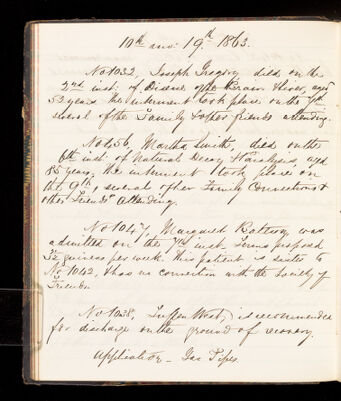 10th mo: 19th 1863.
No 1032, Joseph Gregory died on the
2nd inst. of Disease of the Brain & Liver, aged
52 years. The interment took place on the 7th
several of the Family & other friends attending.
No 656 Martha Smith, died on the
6th inst. of Natural Decay & Paralysis, aged
85 years, the interment took place on
the 9th, several of her Family Connections &
other Friends attending.
No 1047, Margaret was
admitted on the 7th inst. Terms proposed
3½ guineas per week. This patient is sister to
No 1042, & has no connection with the Society of
Friends.
No 1038, West, is recommended
for discharge on the ground of recovery.
Application - Gas Pipes